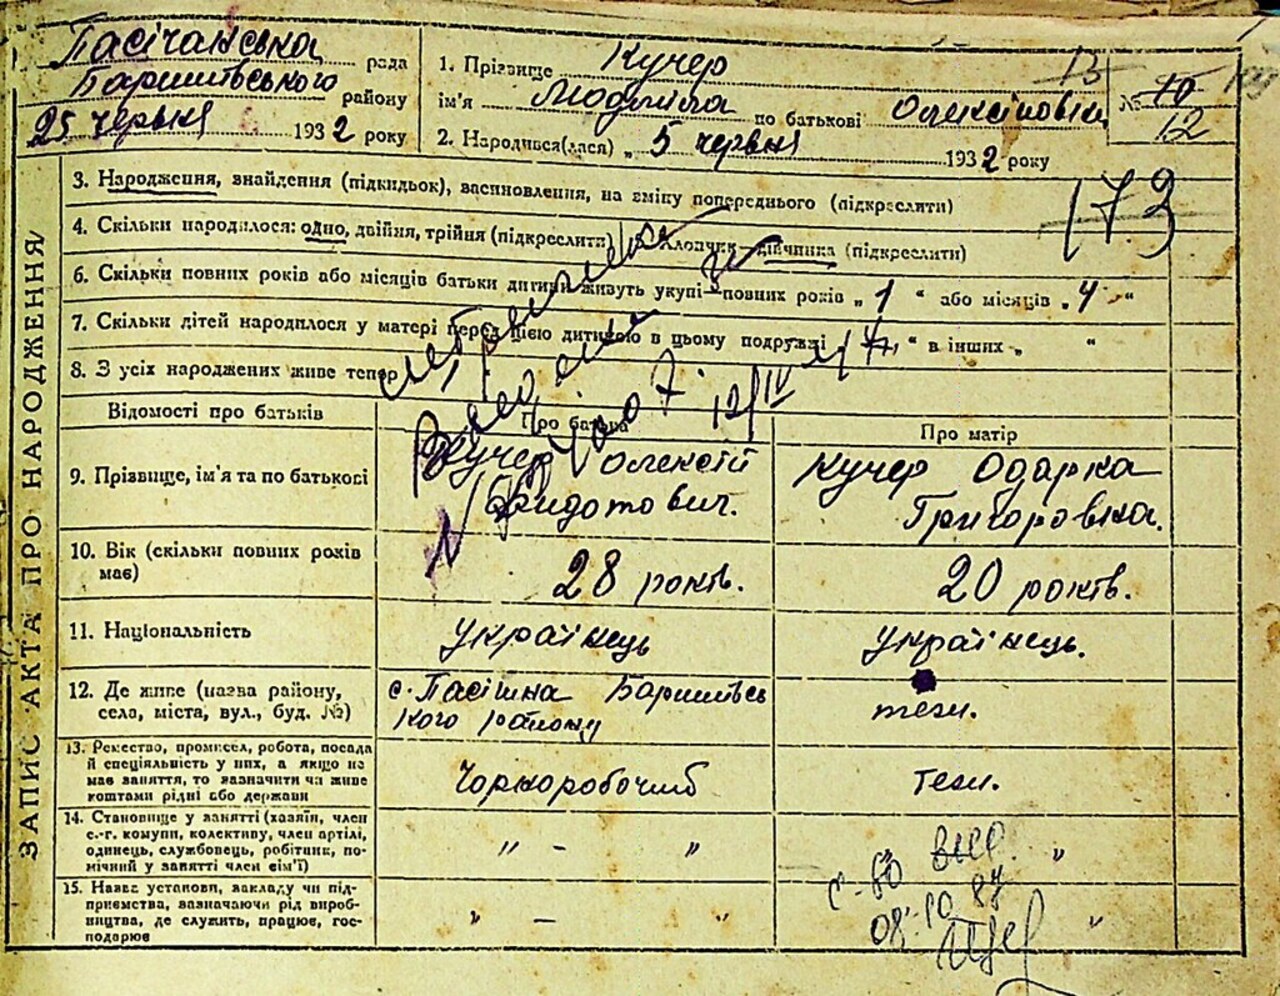 Пасічанська рада
Баришівського району
25 червня 1932 року
1. Прізвище Кучер
ім'я Людмила по батькові Олексіївна
2. Народився(лася) „ 5 червня 1932 року
13
№ 10
12
173
ЗАПИС АКТА ПРО НАРОДЖЕННЯ
3. Народження, знайдення (підкидьок), всиновлення, на зміну попереднього (підкреслити)
4. Скільки народилося: одно, двійня, трійня (підкреслити) Хлопчик—дівчинка (підкреслити)
6. Скільки повних років або місяців батьки дитини живуть укупі—повних років „ 1 “ або місяців „ 4 “
7. Скільки дітей народилося у матері перед цією дитиною в цьому подружжі “ в інших „ “
8. З усіх народжених живе тепер
12/IV
Відомості про батьків
Про батька
Про матір
9. Прізвище, ім'я та по батькові
Кучер Олексій
Федотович.
Кучер Одарка
Григоровна.
10. Вік (скільки повних років має)
28 років.
20 років.
11. Національність
Українець
Українець.
12. Де живе (назва району, села, міста, вул., буд. №)
с. Пасішна Баришівсь
кого району
тези.
13. Ремество, промисел, робота, посада й спеціяльність у них, а якщо не має заняття, то зазначити чи живе коштами рідні або держави
Чорноробочий
тези.
14. Становище у занятті (хазяїн, член с.-г. комуни, колективу, член артілі, одинець, службовець, робітник, помічний у занятті член сім'ї)
„ - „
„
15. Назва установи, закладу чи підприємства, зазначаючи рід виробництва, де служить, працює, господарює
„ — „
„
08.10.87